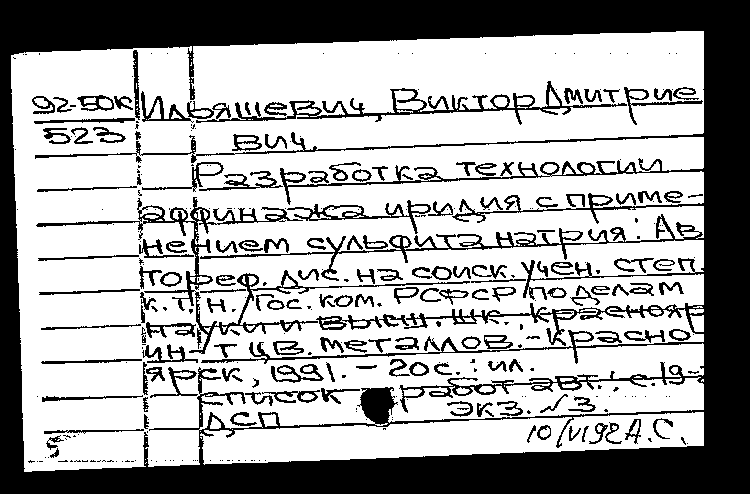 92-50к Ильяшевич, Виктор Дмитрие
523 вич.
Разработка технологии
аффинажа иридия с приме-
нением сульфита натрия: Ав
тореф. дис. на соиск. учен. степ.
к.т.н./Гос. ком. РСФСР по делам
науки и высш. шк., Краснояр
ин-т цв. металлов.-Красно-
ярск, 1991. - 20с.: ил.
список работ авт.: с.19-2
ДСП экз. №3.
5 10/VI92 А.С.